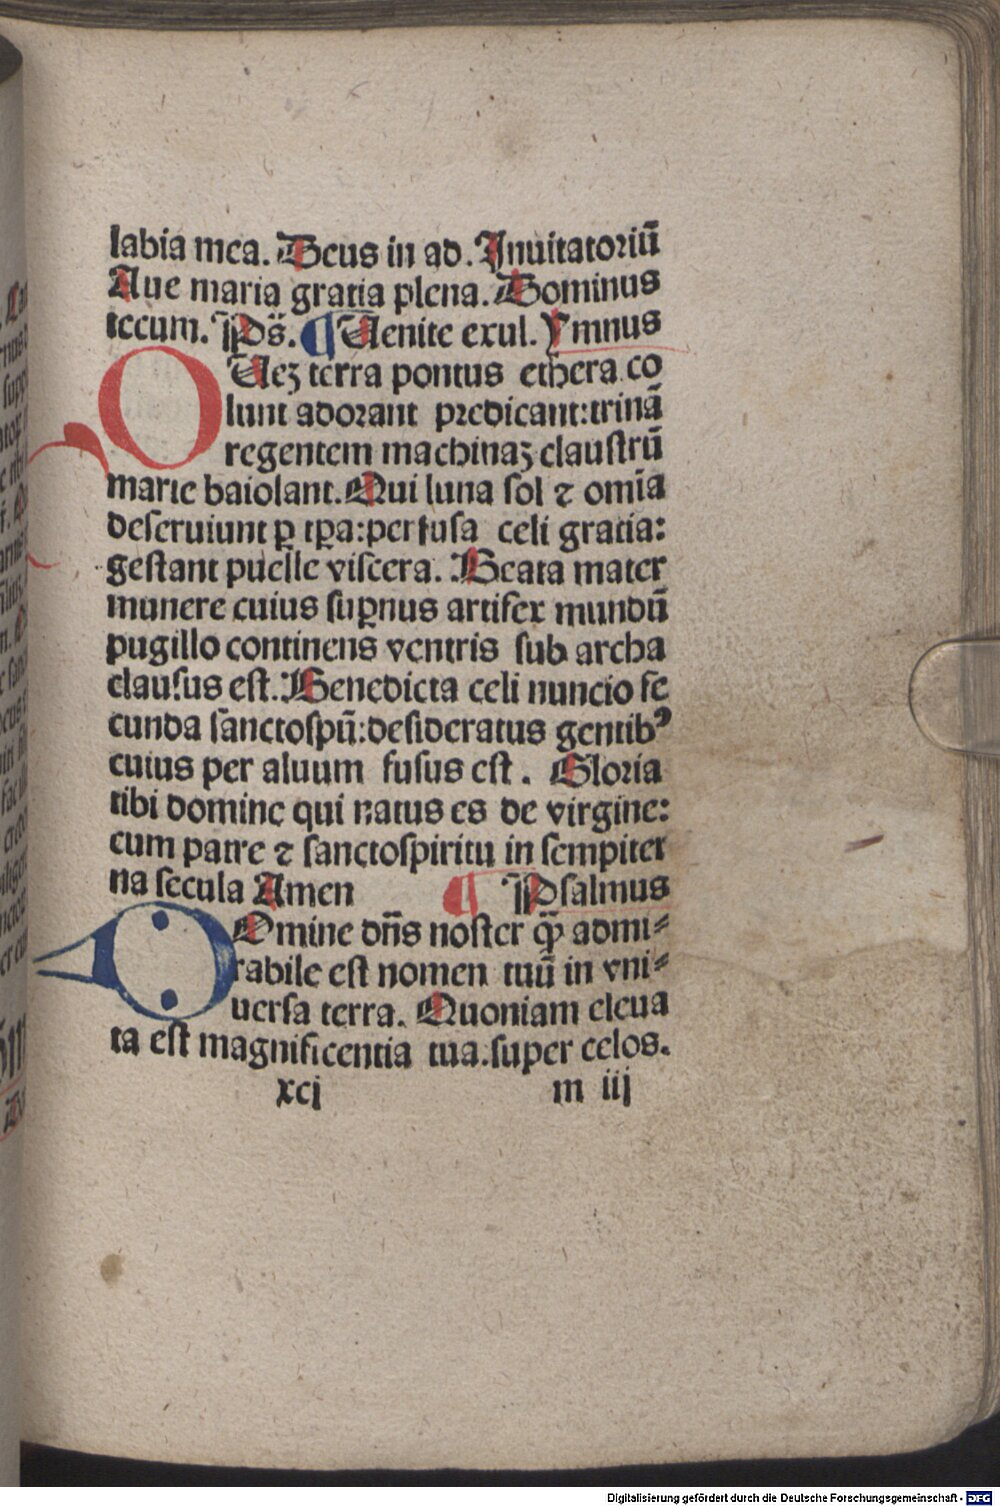 labia mea. Deus in ad. Inuitatoriū
Aue maria gratia plena. Dominus
tecum. Ps̄. ¶ Uenite exul. Ymnus
QUeꝫ terra pontus ethera co
lunt adorant predicant: trinā
regentem machinaꝫ claustrū
marie baiolant. Qui luna sol ⁊ om̄ia
deseruiunt ꝑ tꝑa: perfusa celi gratia:
gestant puelle viscera. Beata mater
munere cuius suꝑnus artifex mundū
pugillo continens ventris sub archa
clausus est. Benedicta celi nuncio fe
cunda sanctospū: desideratus gentibꝰ
cuius per aluum fusus est. Gloria
tibi domine qui natus es de virgine:
cum patre ⁊ sanctospiritu in sempiter
na secula Amen ¶ Psalmus
DOmine dn̄s noster qꝫ̄ admi⸗
rabile est nomen tuū in vni⸗
uersa terra. Quoniam eleua
ta est magnificentia tua. super celos.
xcj m iij
Digitalisierung gefördert durch die Deutsche Forschungsgemeinschaft - DFG